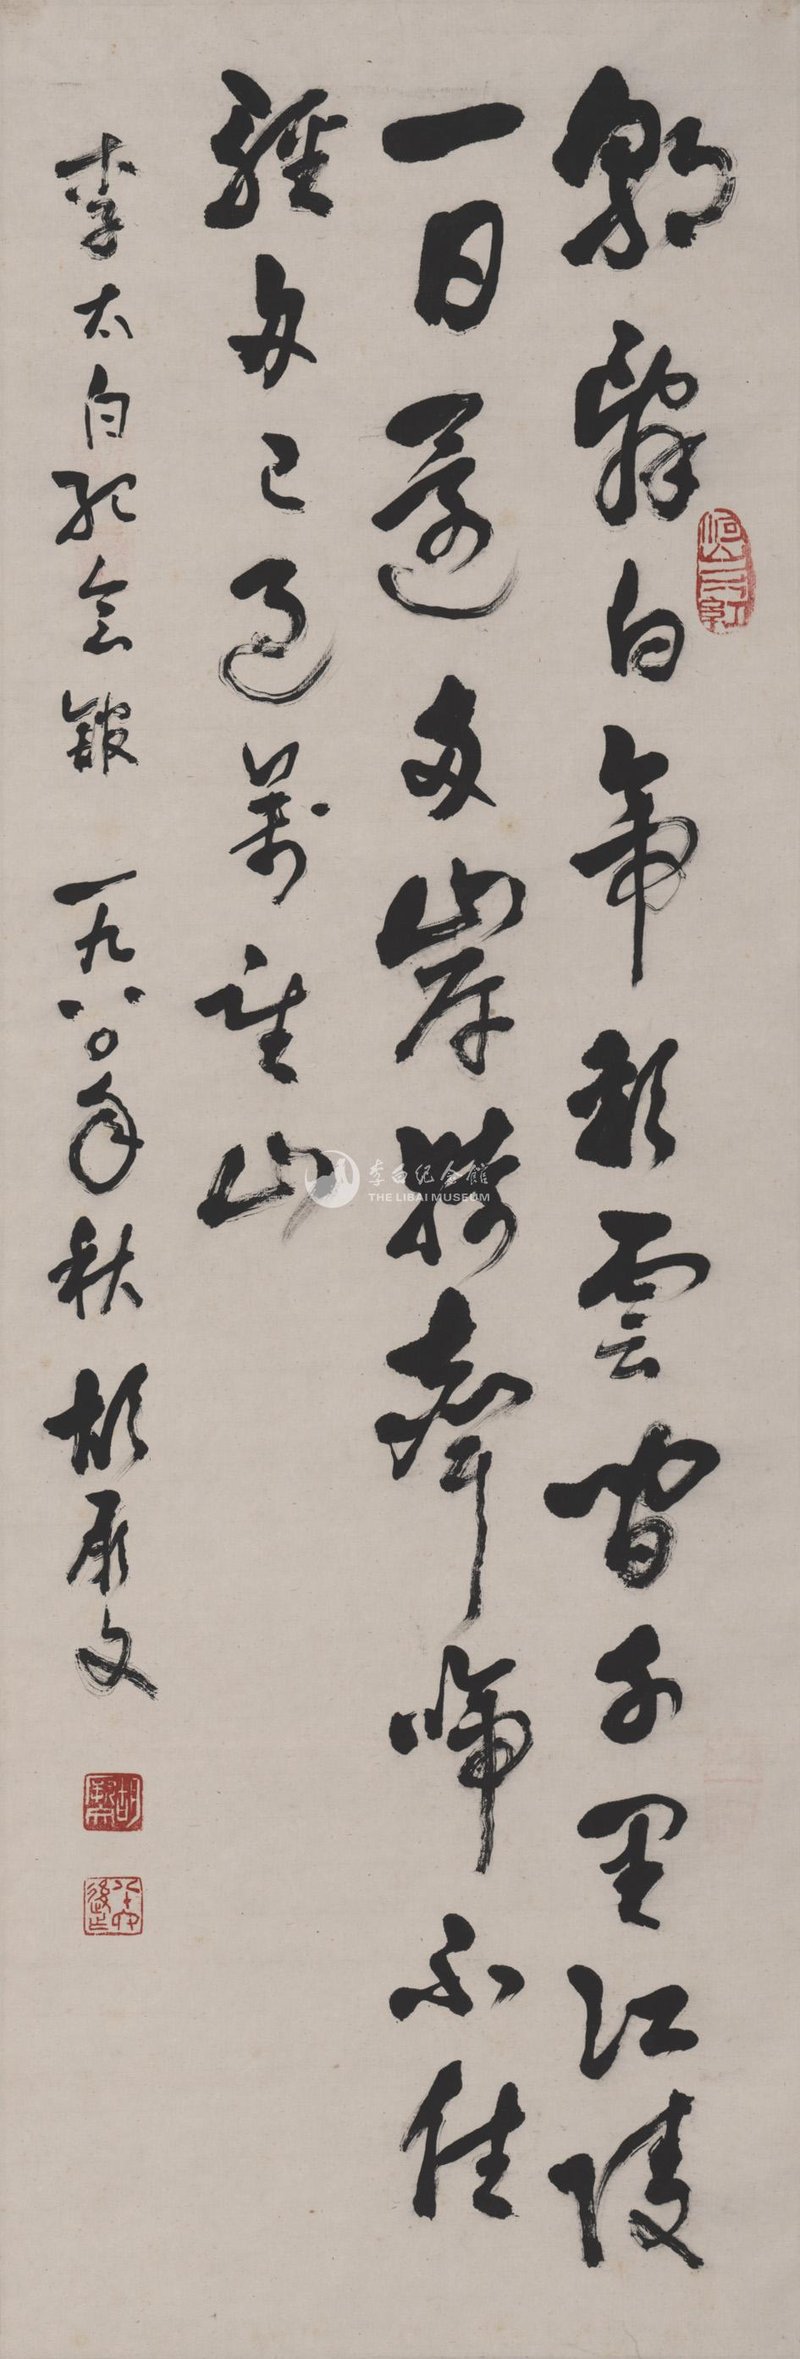 朝辞白帝彩雲間千里江陵
一日還兩岸猿聲啼不住
輕舟已過萬重山
李太白紀念館 一九八〇年秋 胡厥文
胡厥文
李白纪念館
THE LIBAI MUSEUM